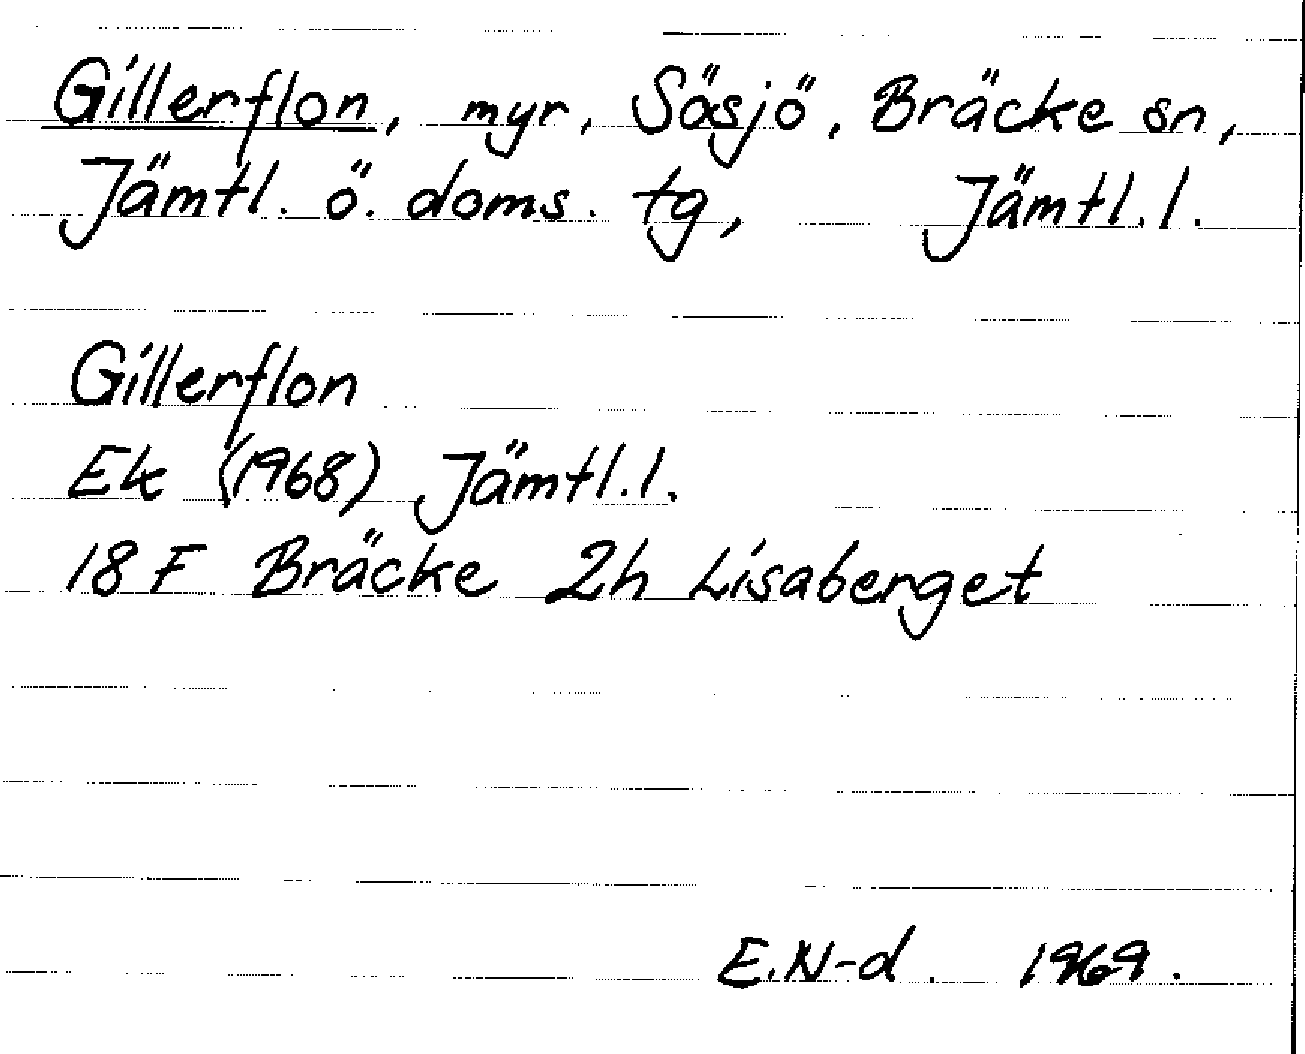 Gillerflon, myr, Sösjö, Bräcke sn,
Jämtl. ö. doms. tg, Jämtl. l.
Gillerflon
Ek (1968) Jämtl. l.
18 F Bräcke 2h Lisaberget
E.N-d. 1969.